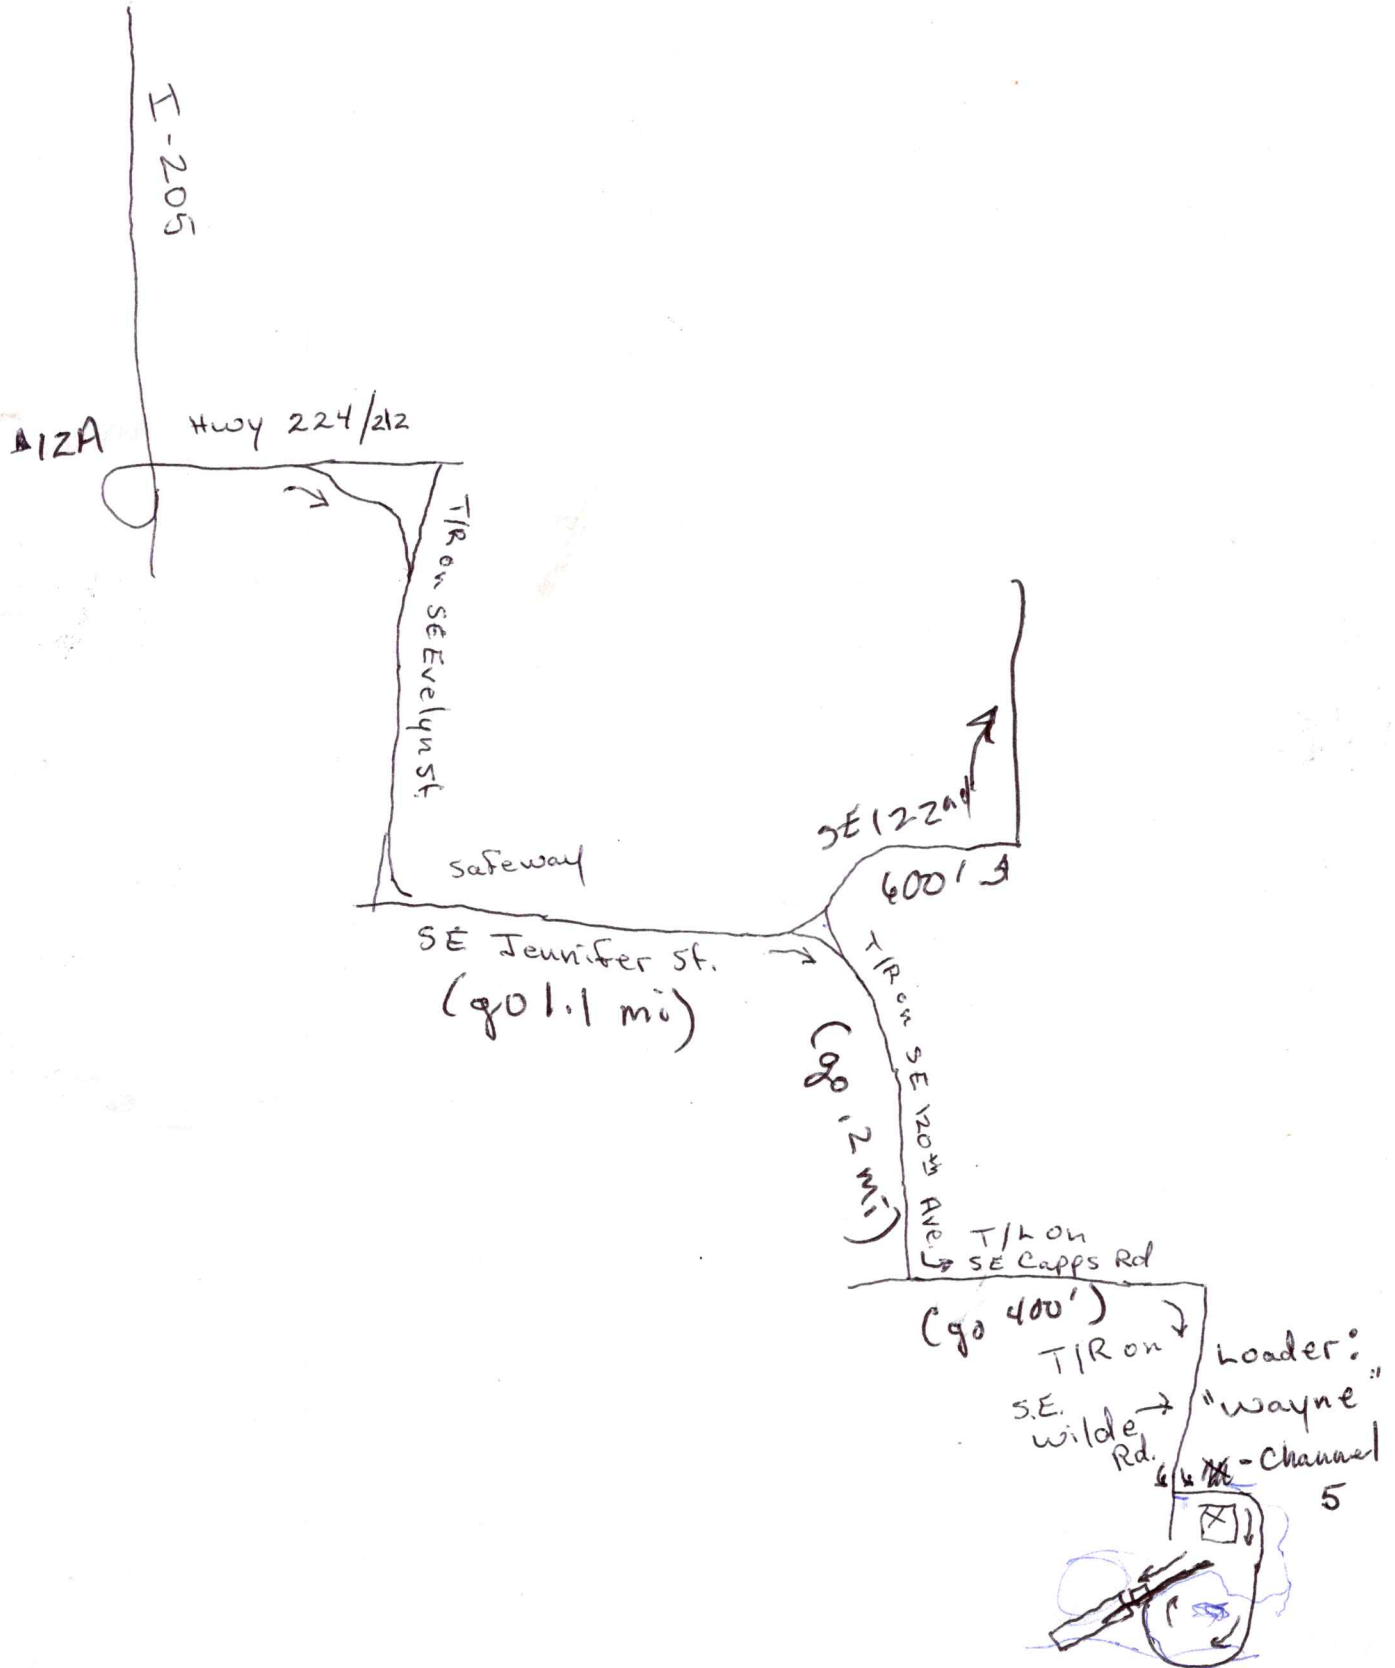 I-205
12A
Hwy 224/212
T/R on SE Evelyn St.
Safeway
SE Jennifer St.
(go 1.1 mi)
SE 122nd
600'
T/R on SE 120th Ave.
(go .2 mi)
T/L on
SE Capps Rd
(go 400')
T/R on
S.E.
Wilde
Rd.
Loader:
"Wayne"
- Channel
5